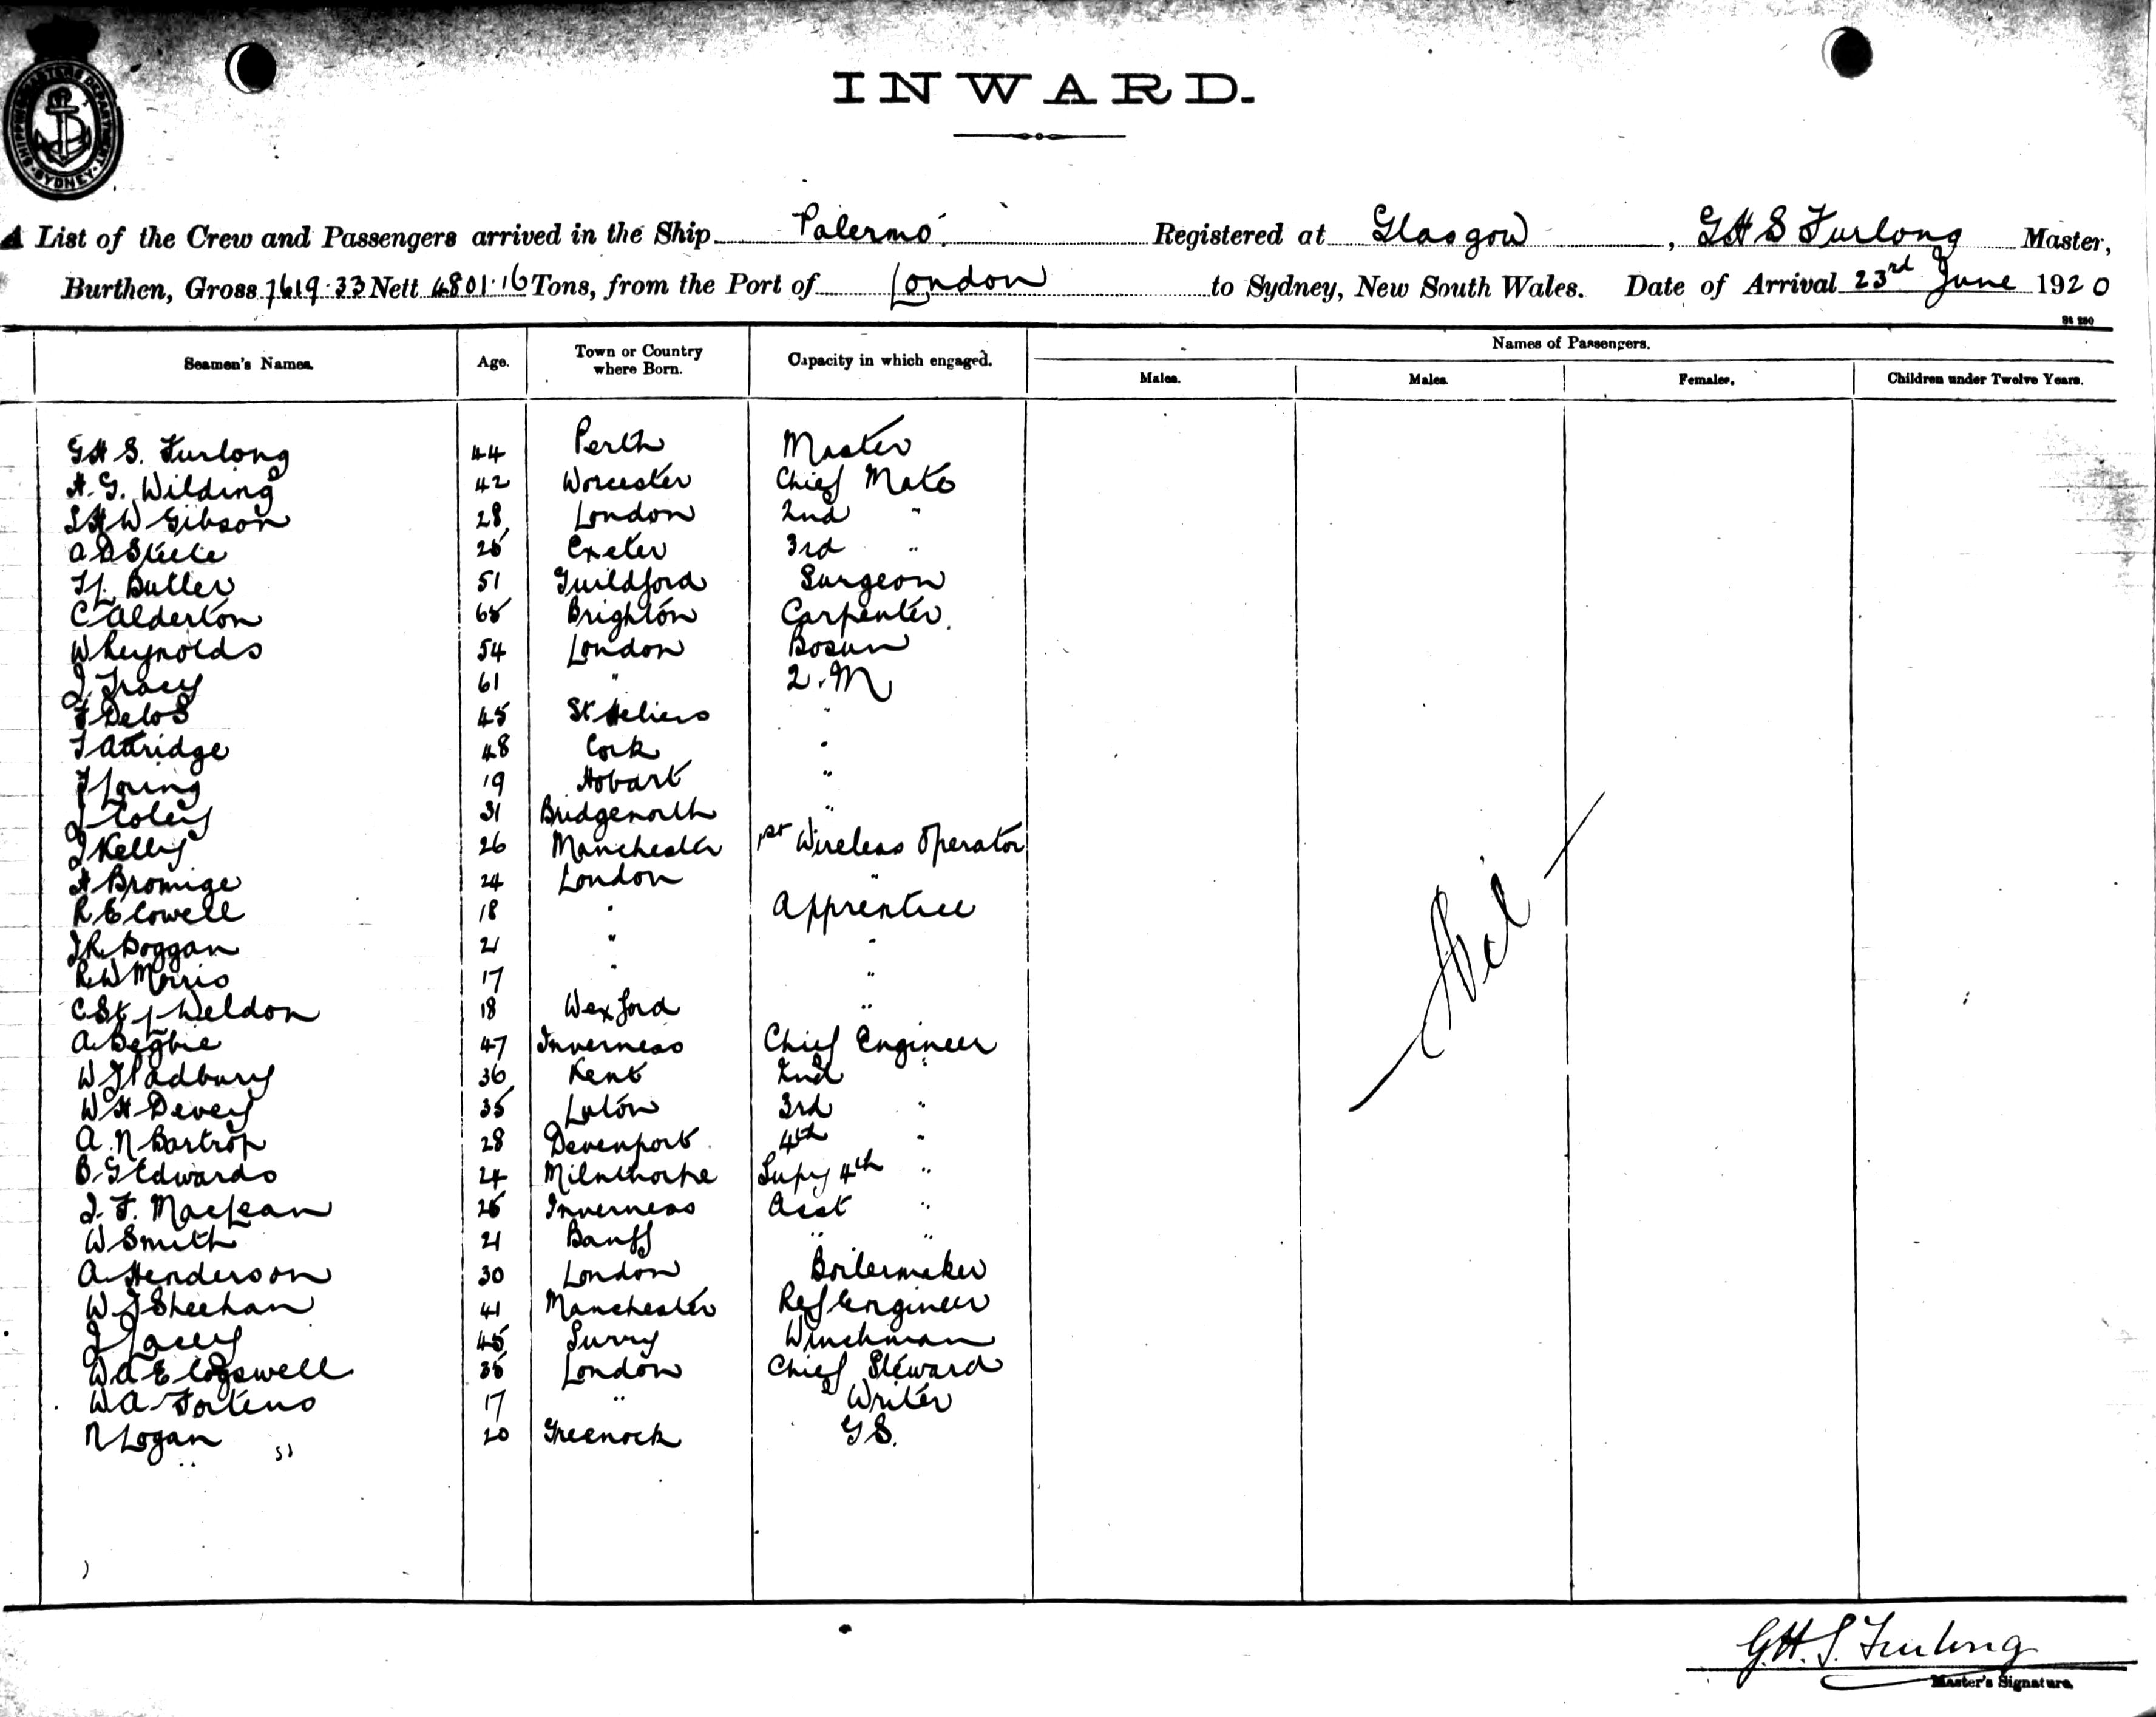 SHIPPING MASTERS DEPARTMENT SYDNEY
INWARD.
A List of the Crew and Passengers arrived in the Ship Palermo. Registered at Glasgow, G H S Furlong Master,
Burthen, Gross 7619.33 Nett 4801.16 Tons, from the Port of London to Sydney, New South Wales. Date of Arrival 23rd June 1920
St 280
Names of Passengers.
Seamen's Names. Age. Town or Country where Born. Capacity in which engaged. Males. Males. Females. Children under Twelve Years.
G H S. Furlong 44 Perth Master
H. G. Wilding 42 Worcester Chief Mate
S H W Gibson 28 London 2nd "
A D Steele 25 Exeter 3rd "
T L Butler 51 Guildford Surgeon
C Alderton 65 Brighton Carpenter.
W Reynolds 54 London Bosun
J. Tracey 61 " 2. M
F 45 St Heliers "
T Attridge 48 Cork "
19 Hobart "
J Coley 31 Bridgenorth "
J Kelly 26 Manchester 1st Wireless Operator
H Bromige 24 London "
R E Cowell 18 " Apprentice
J R Doggan 21 " "
R. W Morris 17 " "
C St J Weldon 18 Wexford "
A Begbie 47 Inverness Chief Engineer
W J Padbury 36 Kent 2nd "
W H Devey 35 Luton 3rd "
A. N Bartrop 28 Devenport 4th "
B G Edwards 24 Milnthorpe Supy 4th "
J. F. MacLean 25 Inverness Asst "
W Smith 21 Banff " "
A Henderson 30 London Boilermaker
W J Sheehan 41 Manchester Ref Engineer
J Lacey 45 Surry Winchman
W A E Cogswell 35 London Chief Steward
W A 17 " Writer
N Logan 20 Greenock G S.
Nil
G. H. S. Furlong
Master's Signature.